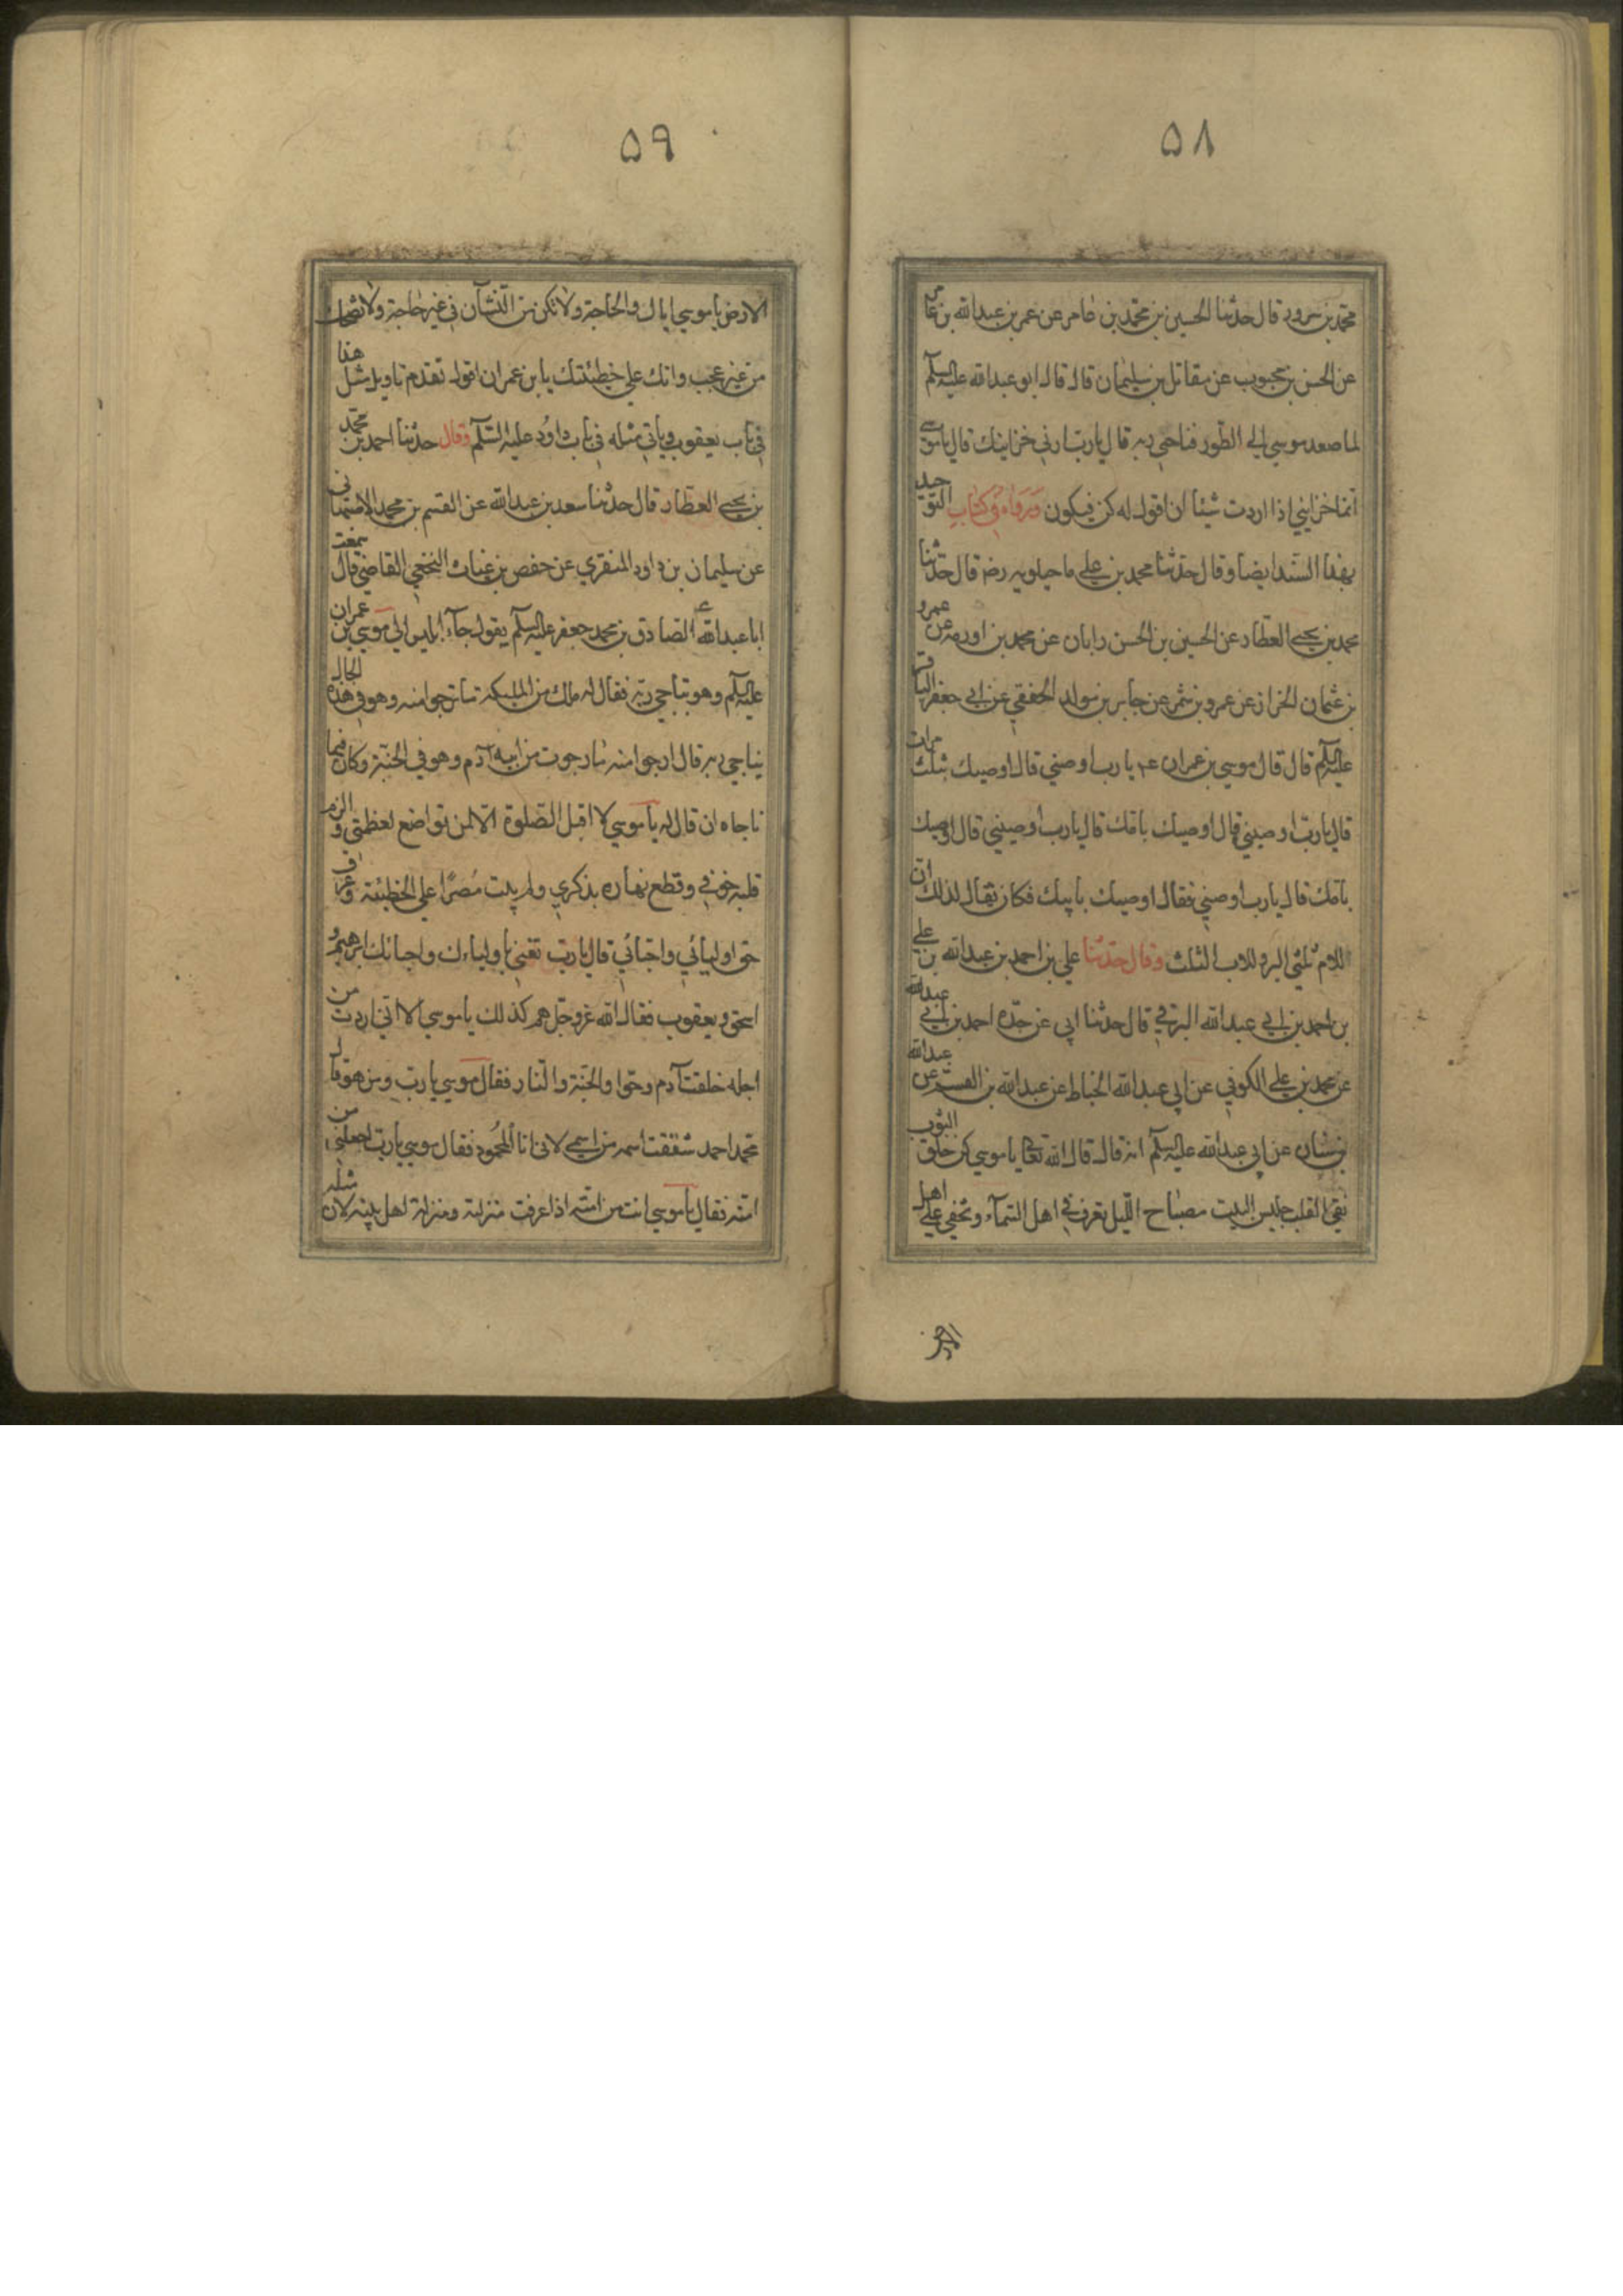 ۵۸
محمد بن مسرور قال حدثنا الحسين بن محمد بن عامر عن عمر بن عبدالله بن عامر
عن الحسن بن محبوب عن مقاتل بن سليمان قال قال ابو عبدالله عليه السلم
لما صعد موسي الي الطور فناجي ربه قال يا رب ارني خزاينك قال يا موسي
انما خزايني اذا اردت شيئا ان اقول له كن فيكون ورواه في كتاب التوحيد
بهذا السند ايضا وقال حدثنا محمد بن علي ماجيلويه رضه قال حدثنا
محمد بن يحيي العطار عن الحسين بن الحسن بن ابان عن محمد بن اورمه عن عمرو
بن عثمان الخزاز عن عمرو بن شمر عن جابر بن يزيد الجعفي عن ابي جعفر الباقر
عليه السلم قال قال موسي بن عمران عم يا رب اوصني قال اوصيك بي ثلث مرات
قال يا رب اوصيني قال اوصيك بامك قال يا رب اوصيني قال اوصيك
بامك قال يا رب اوصني فقال اوصيك بابيك فكان يقال لذلك ان
للام ثلثي البر وللاب الثلث وقال حدثنا علي بن احمد بن عبدالله بن علي
بن احمد بن ابي عبدالله البرقي قال حدثنا ابي عن جده احمد بن ابي عبدالله
عن محمد بن علي الكوفي عن ابي عبدالله الخياط عن عبدالله بن القسم عن عبدالله
بن سنان عن ابي عبدالله عليه السلم انه قال قال الله تعالي يا موسي كن خلق الثوب
نقي القلب جليس البيت مصباح الليل تعرف في اهل السمآء وتخفي علي اهل
الارض
۵۹
الارض يا موسي اياك واللجاجة ولا تكن من المشآئين في غير حاجة ولا تضحك
من غير عجب وابك علي خطيئتك يا بن عمران اقول تقدم تاويل مثل هذا
في باب يعقوب وياتي مثله في باب داود عليه السلم وقال حدثنا احمد بن محمد
بن يحيي العطار قال حدثنا سعد بن عبدالله عن القسم بن محمد الاصبهاني
عن سليمان بن داود المنقري عن حفص بن غياث النخعي القاضي قال سمعت
ابا عبدالله الصادق بن محمد جعفر عليه السلم يقول جآء ابليس الي موسي بن عمران
عليه السلم وهو يناجي ربه فقال له ملك من الملئكة ما ترجوا منه وهو في هذه الحال
يناجي ربه قال ارجوا منه ما رجوت من ابيه آدم وهو في الجنة وكان فيما
ناجاه ان قال له يا موسي لا اقبل الصلوة الا لمن تواضع لعظمتي والزم
قلبه خوفي وقطع نهاره بذكري ولم يبت مصرا علي الخطيئة وعرف
حق اوليآئي واحبائي قال يا رب تعني باوليائك واحبائك ابرهيم و
اسحق ويعقوب فقال الله عز وجل هم كذلك يا موسي الا اني اردت من
اجله خلقت آدم وحوا والجنة والنار فقال موسي يا رب ومن هو قال
محمد احمد شققت اسمه من اسمي لاني انا المحمود فقال موسي يا رب اجعلني من
امته فقال يا موسي انت من امته اذا عرفت منزلته ومنزلة اهل بيته لان مثله